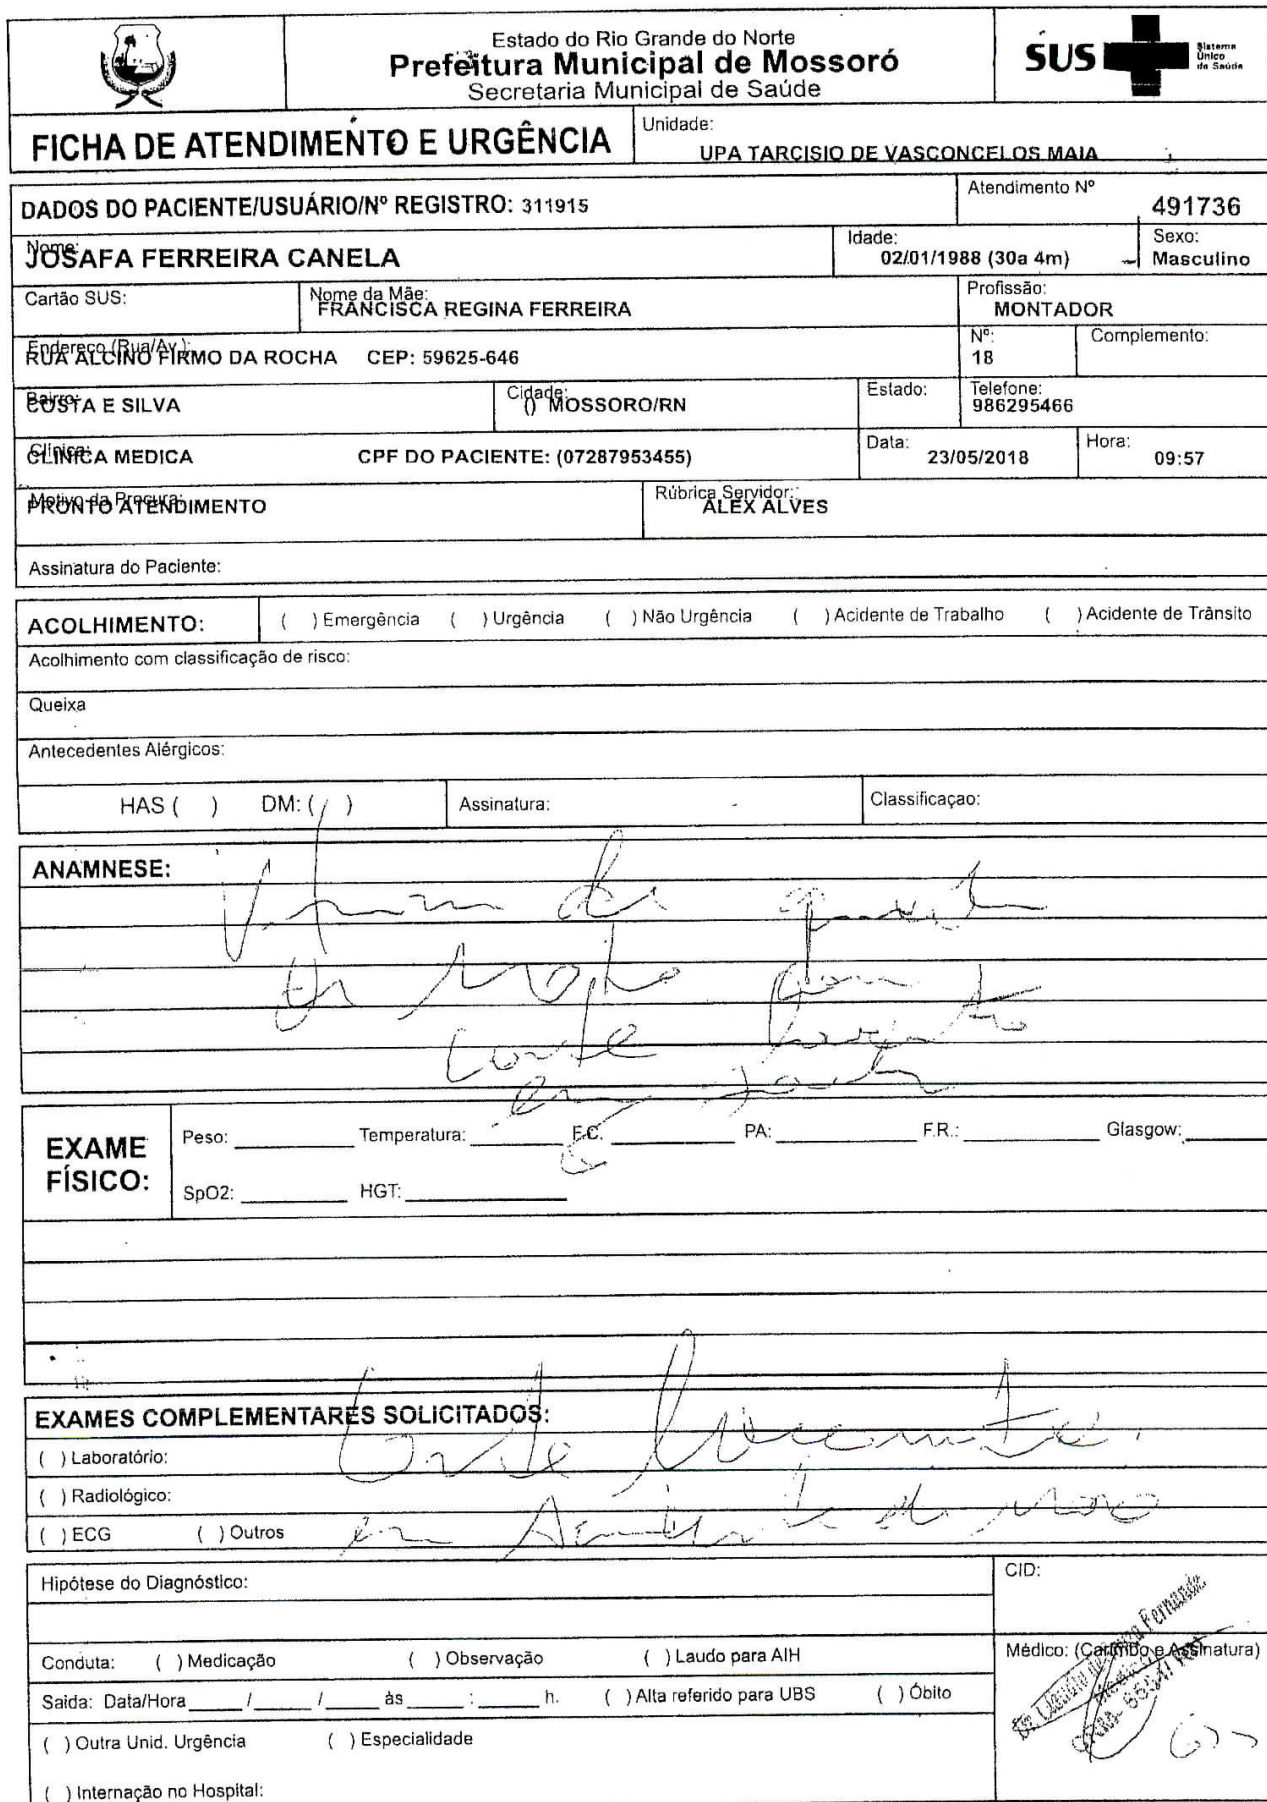 Estado do Rio Grande do Norte
Prefeitura Municipal de Mossoró
Secretaria Municipal de Saúde
SUS Sistema Único de Saúde
FICHA DE ATENDIMENTO E URGÊNCIA
Unidade:
UPA TARCISIO DE VASCONCELOS MAIA
DADOS DO PACIENTE/USUÁRIO/Nº REGISTRO: 311915
Atendimento Nº
491736
Nome:
JOSAFA FERREIRA CANELA
Idade:
02/01/1988 (30a 4m)
Sexo:
Masculino
Cartão SUS:
Nome da Mãe:
FRANCISCA REGINA FERREIRA
Profissão:
MONTADOR
Endereço (Rua/Av.):
RUA ALCINO FIRMO DA ROCHA CEP: 59625-646
Nº:
18
Complemento:
Bairro:
COSTA E SILVA
Cidade:
() MOSSORO/RN
Estado:
Telefone:
986295466
Clínica:
CLINICA MEDICA CPF DO PACIENTE: (07287953455)
Data:
23/05/2018
Hora:
09:57
Motivo da Procura:
PRONTO ATENDIMENTO
Rúbrica Servidor:
ALEX ALVES
Assinatura do Paciente:
ACOLHIMENTO: ( ) Emergência ( ) Urgência ( ) Não Urgência ( ) Acidente de Trabalho ( ) Acidente de Trânsito
Acolhimento com classificação de risco:
Queixa
Antecedentes Alérgicos:
HAS ( ) DM: ( ) Assinatura: Classificaçao:
ANAMNESE:
de
de Moto com
corte
em
EXAME FÍSICO:
Peso: Temperatura: F.C. PA: F.R.: Glasgow:
SpO2: HGT:
EXAMES COMPLEMENTARES SOLICITADOS:
Corte
( ) Laboratório:
( ) Radiológico:
( ) ECG ( ) Outros
em
Hipótese do Diagnóstico:
CID:
Conduta: ( ) Medicação ( ) Observação ( ) Laudo para AIH
Médico: (Carimbo e Assinatura)
Saida: Data/Hora / / às : h. ( ) Alta referido para UBS ( ) Óbito
( ) Outra Unid. Urgência ( ) Especialidade
( ) Internação no Hospital: